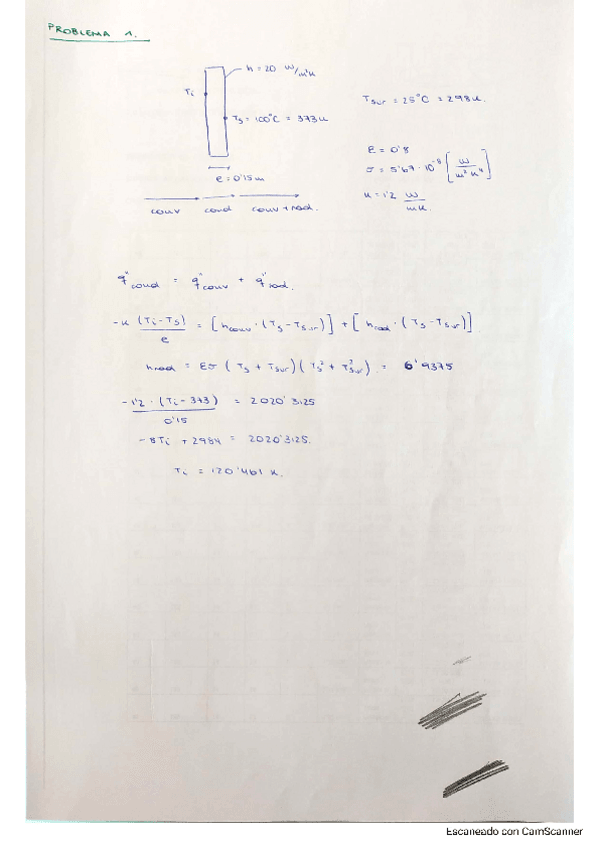 PROBLEMA 1.
h = 20 W/m²K
Ti
Ts = 100°C = 373K
Tsur = 25°C = 298K.
ε = 0'8
σ = 5'67 · 10⁻⁸ [W/m²K⁴]
e = 0'15m
K = 1'2 W/mK
conv cond conv + rad.
q"cond = q"conv + q"rad.
-K (Ti - Ts)/e = [hconv · (Ts - Tsur)] + [hrad · (Ts - Tsur)]
hrad = εσ (Ts + Tsur)(Ts² + T²sur). = 6'9375
-1'2 · (Ti - 373)/0'15 = 2020'3125
-8Ti + 2984 = 2020'3125.
Ti = 120'461 K.
Escaneado con CamScanner